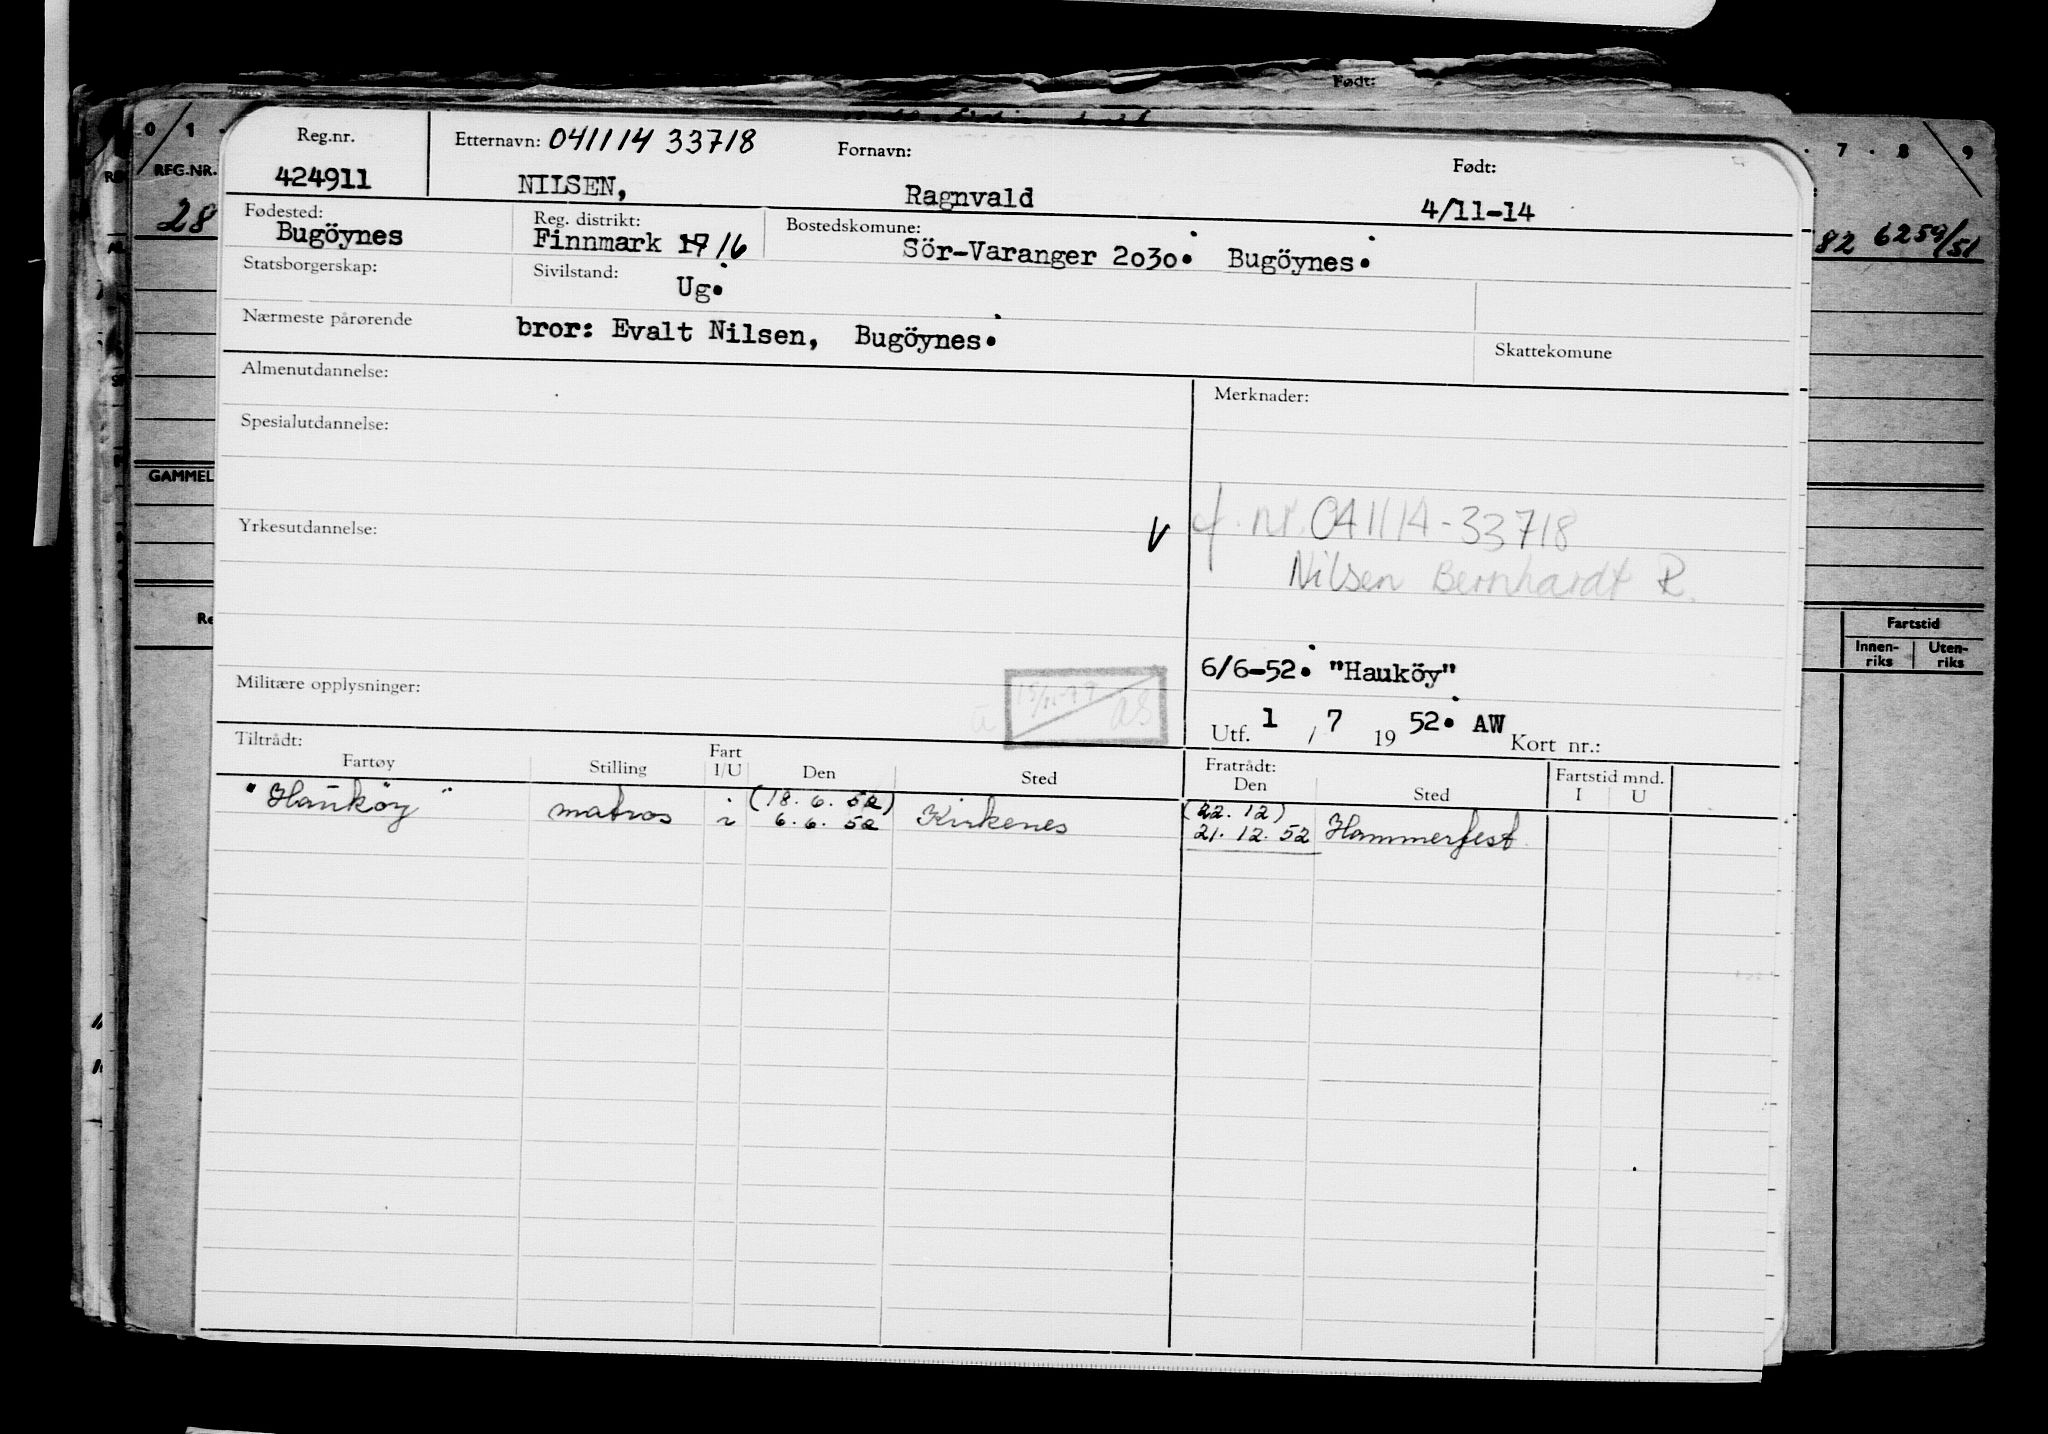 Født:
0 1 7 8 9
REG.NR.
28
82 6259/51
GAMMEL
Fartstid
Innen-riks Uten-riks
Reg.nr. Etternavn: 041114 33718 Fornavn: Født:
424911 NILSEN, Ragnvald 4/11-14
Fødested: Reg. distrikt: Bostedskomune:
Bugöynes Finnmark 17 16 Sör-Varanger 2030. Bugöynes.
Statsborgerskap: Sivilstand: Ug.
Nærmeste pårørende bror: Evalt Nilsen, Bugöynes.
Skattekomune
Almenutdannelse: Merknader:
Spesialutdannelse:
f. nr. 041114-33718
Yrkesutdannelse: V
Nilsen Bernhardt R.
6/6-52. "Hauköy"
Militære opplysninger:
Utf. 1 / 7 19 52. AW Kort nr.:
Tiltrådt: Fratrådt: Fartstid mnd.
Fartøy Stilling Fart I/U Den Sted Den Sted I U
"Hauköy" matros i (18. 6. 52) (22. 12)
i 6. 6. 52 Kirkenes 21. 12. 52 Hammerfest